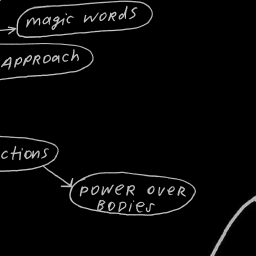 magic words
APPROACH
ctions
POWER OVER
BODIES